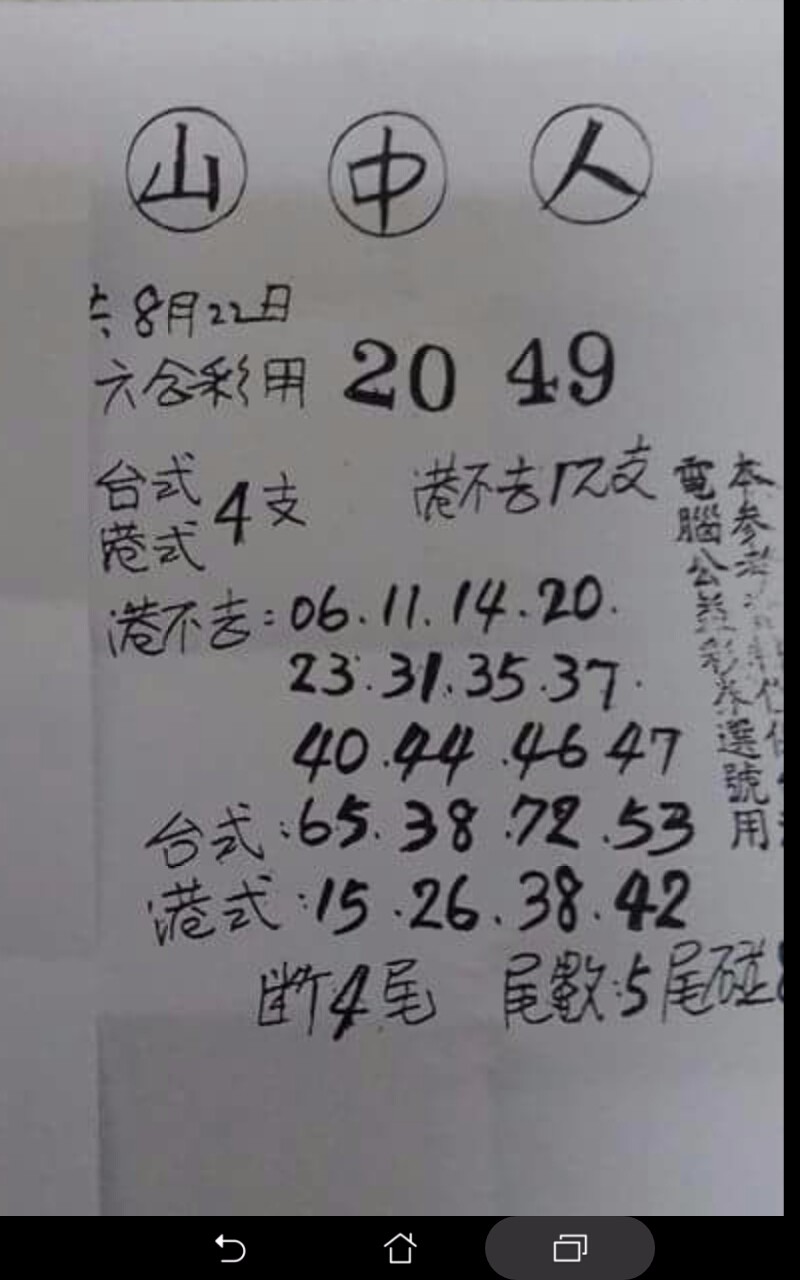 山 中 人
六 8月22日
六合彩用 20 49
台式
港式 4支 港不去12支
港不去:06.11.14.20.
23.31.35.37.
40.44.46 47
台式:65.38.72.53
港式:15.26.38.42
断4尾 尾數:5尾碰8
本參考
電腦公益彩券選號用